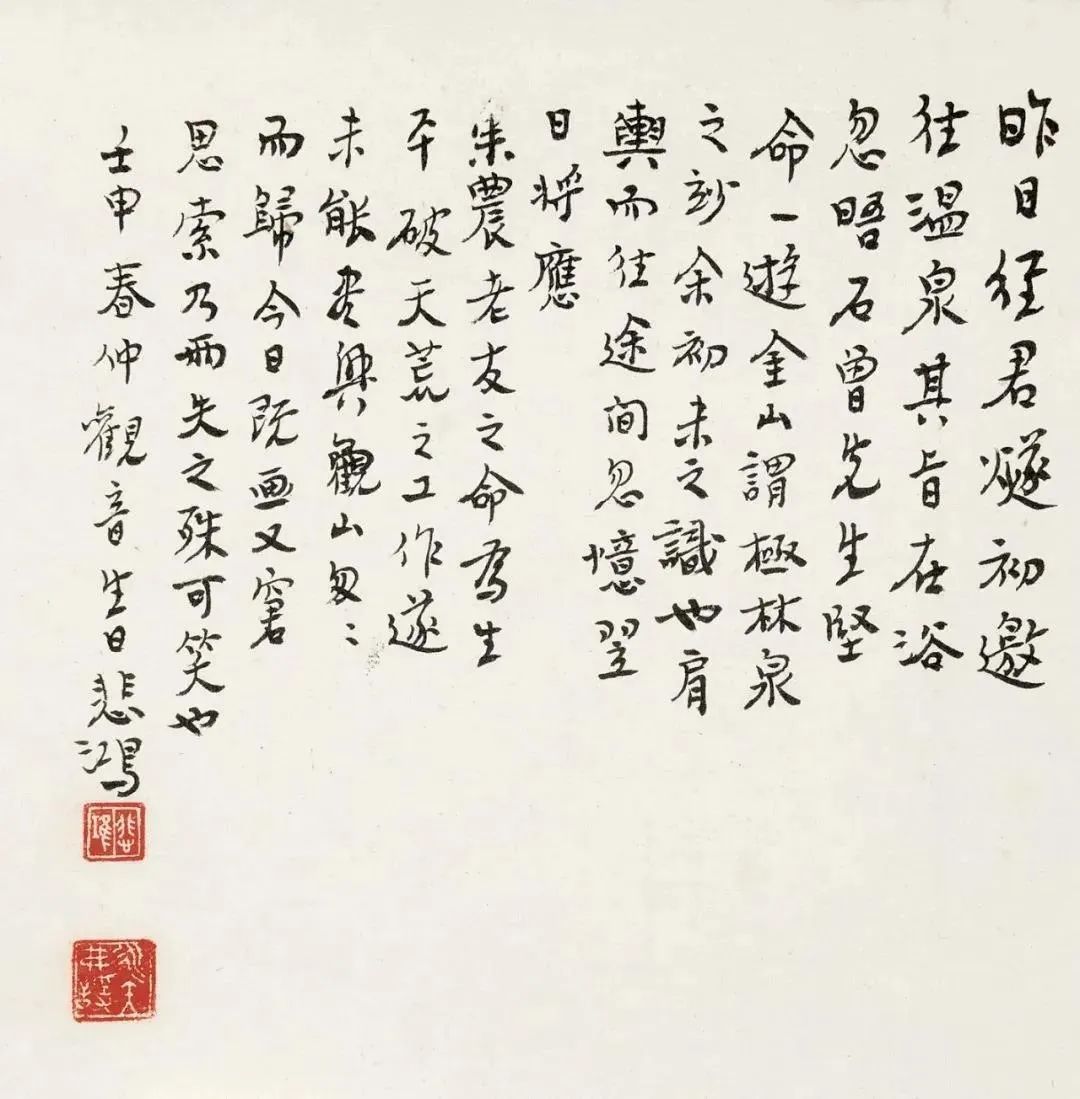 昨日經君燧初邀
往溫泉其旨在浴
忽晤石曾先生堅
命一遊金山謂極林泉
之妙余初未之識也肩
輿而往途間忽憶翌
日將應
朱農老友之命為生
平破天荒之工作遂
未能盡興觀山匆匆
而歸今日既画又窘
思索乃兩失之殊可笑也
壬申春仲觀音生日悲鴻